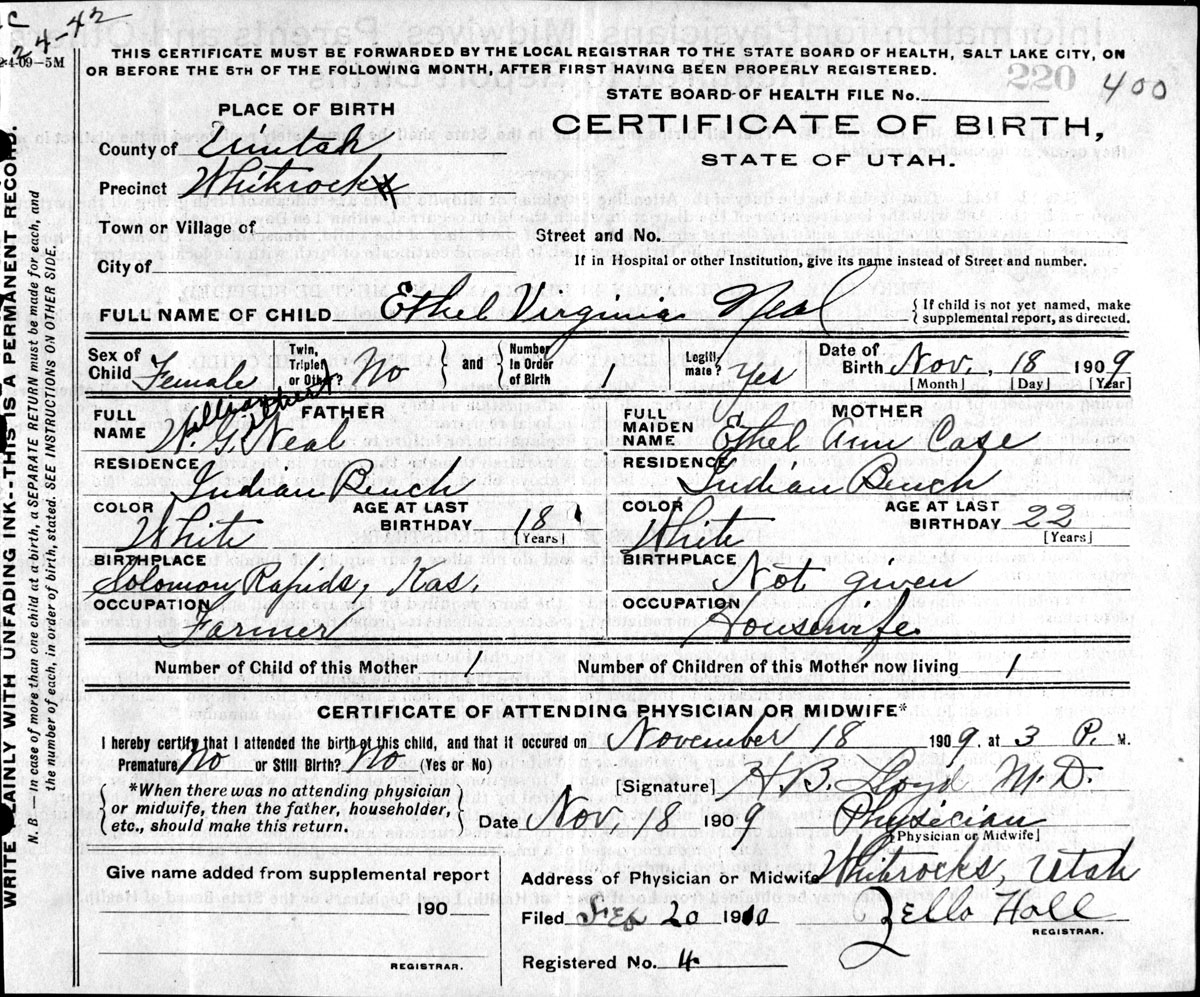 24-42
2-4-09-5M
THIS CERTIFICATE MUST BE FORWARDED BY THE LOCAL REGISTRAR TO THE STATE BOARD OF HEALTH, SALT LAKE CITY, ON
OR BEFORE THE 5TH OF THE FOLLOWING MONTH, AFTER FIRST HAVING BEEN PROPERLY REGISTERED.
220
400
STATE BOARD OF HEALTH FILE No.
PLACE OF BIRTH
CERTIFICATE OF BIRTH,
STATE OF UTAH.
County of Uintah
Precinct Whitrocks
Town or Village of
Street and No.
City of
If in Hospital or other Institution, give its name instead of Street and number.
FULL NAME OF CHILD Ethel Virginia Neal
{If child is not yet named, make
supplemental report, as directed.
Sex of Child Female
Twin, Triplet or Other? No
and
Number in Order of Birth 1
Legitimate? Yes
Date of Birth Nov. 18 1909
[Month] [Day] [Year]
FULL NAME FATHER
William Gilbert
W. G. Neal
FULL MAIDEN NAME MOTHER
Ethel Ann Case
RESIDENCE Indian Bench
RESIDENCE Indian Bench
COLOR White
AGE AT LAST BIRTHDAY 18 [Years]
COLOR White
AGE AT LAST BIRTHDAY 22 [Years]
BIRTHPLACE Solomon Rapids, Kas.
BIRTHPLACE Not given
OCCUPATION Farmer
OCCUPATION Housewife
Number of Child of this Mother 1
Number of Children of this Mother now living 1
CERTIFICATE OF ATTENDING PHYSICIAN OR MIDWIFE*
I hereby certify that I attended the birth of this child, and that it occured on November 18 1909, at 3 P. M.
Premature No or Still Birth? No (Yes or No)
[Signature] H. B. Lloyd M.D.
{*When there was no attending physician
or midwife, then the father, householder,
etc., should make this return.}
Date Nov. 18 1909
Physician
[Physician or Midwife]
Give name added from supplemental report
190
REGISTRAR.
Address of Physician or Midwife Whitrocks, Utah
Filed 20 1910
Zello Hall
REGISTRAR.
Registered No. 4
WRITE PLAINLY WITH UNFADING INK--THIS IS A PERMANENT RECORD.
N. B.—In case of more than one child at a birth, a SEPARATE RETURN must be made for each, and
the number of each, in order of birth, stated. SEE INSTRUCTIONS ON OTHER SIDE.